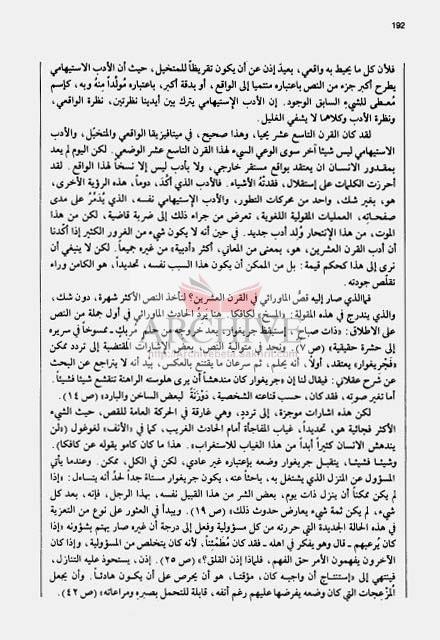 192
فلأن كل ما يحيط به واقعي، بعيدٌ إذن عن أن يكون تقريظاً للمتخيل، حيث أن الأدب الاستيهامي
يطرح أكبر جزء من النص باعتباره منتميا إلى الواقع، أو بدقة أكبر، باعتباره مُولّداً مِنهُ وبه، كإسم
مُعـطى للشيء السابق الوجود. إن الأدب الإستيهامي يترك بين أيدينا نظرتين، نظرة الواقعي،
ونظرة الأدب وكلاهما لا يشفي الغليل.
لقد كان القرن التاسع عشر يحيا، وهذا صحيح، في ميتافيزيقا الواقعي والمتخيّل، والأدب
الاستيهامي ليس شيئا آخر سوى الوعي السيء لهذا القرن التاسع عشر الوضعي. لكن اليوم لم يعد
بمقـدور الانسان ان يعتقد بواقع مستقر خارجي، ولا بأدب ليس إلا نسخاً لهذا الواقع. لقد
أحرزت الكلمات على إستقلال، فقدتْهُ الأشياء. فالأدب الذي أكّد، دوماً، هذه الرؤية الأخرى،
هو، بغير شك، واحد من محركات التطور، والأدب الإستيهامي نفسه، الذي يُدمّرُ على مدى
صفحـاته، العمليات المقولية اللغوية، تعرض من جراء ذلك إلى ضربة قاضية، لكن من هذا
الموت، من هذا الإنتحار وُلد أدب جديد. في حين أنه لا يكون شيء من الغرور الكثير إذا أكّدنا
أن أدب القرن العشرين، هو، بمعنى من المعاني، أكثر «أدبية» من غيره جميعاً. لكن لا ينبغي أن
نرى إلى هذا كحكم قيمة: بل من الممكن أن يكون هذا السبب نفسه، تحديداً، هو الكامن وراء
تقلّص جودته.
فماالذي صار إليه قصُّ الماورائي في القرن العشرين؟ لنأخذ النص الأكثر شهرة، دون شك،
والذي يندرج في هذه المقولة: «المسخ» لكافكا. هنا يَرِدُ الحادث الماورائي في أول جملة من النص
على الاطلاق: «ذات صباح، إستيقظ جريغوار، بعد خروجه من حلم مُربكٍ، ممسوخاً في سريره
إلى حشرة حقيقية» (ص ٧). ونجد في متوالية النص، بعض الإشارات المقتضبة إلى تردد ممكن
«فجْريغوار» يعتقد، أولاً، أنه يحلم، ثم سرعان ما يقتنع بالعكس، بَيْد أنه لا يتراجع عن البحث
عن شرحٍ عقلاني: فيقال لنا إن «جريغوار كان مندهشاً أن يرى هلوسته الراهنة تنقشع شيئا فشيئاً.
أما تغير صوته، فقد كان، حسب قناعته الشخصية، لبعض الساخن والبارد» (ص ١٤).
لكن هذه اشارات موجزة، إلى ترددٍ، وهي غارقة في الحركة العامة للقص، حيث الشيء
الأكثر فجائية هو، تحديداً، غياب المفاجأة أمام الحادث الغريب، كما في «الأنف» لغوغول («لن
يندهش الانسان كثيراً أبداً من هذا الغياب للاستغراب». هذا ما كان كامو يقوله عن كافكا).
وشيئا فشيئا، يتقبـل جريغوار وضعه بإعتباره غير عادي، لكن في الكل، ممكن. وعندما يأتي
المسؤول عن المنزل الذي يشتغل به، باحثاً عنه، يكون جريغوار مستاءً جداً لحدّ أنه يتساءل: «إذا
لم يكن ممكناً أن ينزل ذات يوم، بعض الشر من هذا القبيل نفسه، بهذا الرجل، فإنه، بعد كل
شيء، لم يكن ثمة شيء يعارض حدوث ذلك» (ص ١٩). ويبدأ في العثور على نوع من التعزية
في هذه الحالة الجديدة التي حررته من كل مسؤولية وفعل إلى درجة أن غيره صار يهتم بشؤونه «إذا
كان يُرعبهم - قال وهو يفكر في اهله - فقد كان مُطْمَئِنّاً، لأنه كان يتخلص من المسؤولية، وإذا كان
الآخرون يفهمون الأمر حق الفهم، فلماذا إذن القلق؟» (ص ٢٥). إذن، يستحوذ عليه التنازل،
فينتهي إلى «إستنتـاج أن واجبـه كان، مؤقتـا، هو أن يحرص على أن يكـون هادئـاً. وأن يجعل
المُزعجات التي كان وضعه يفرضها عليهم رغم أنفه، قابلة للتحمل بصبره ومراعاته» (ص ٤٢).
ARCHIVE
http://Archivebeta.Sakhrit.com